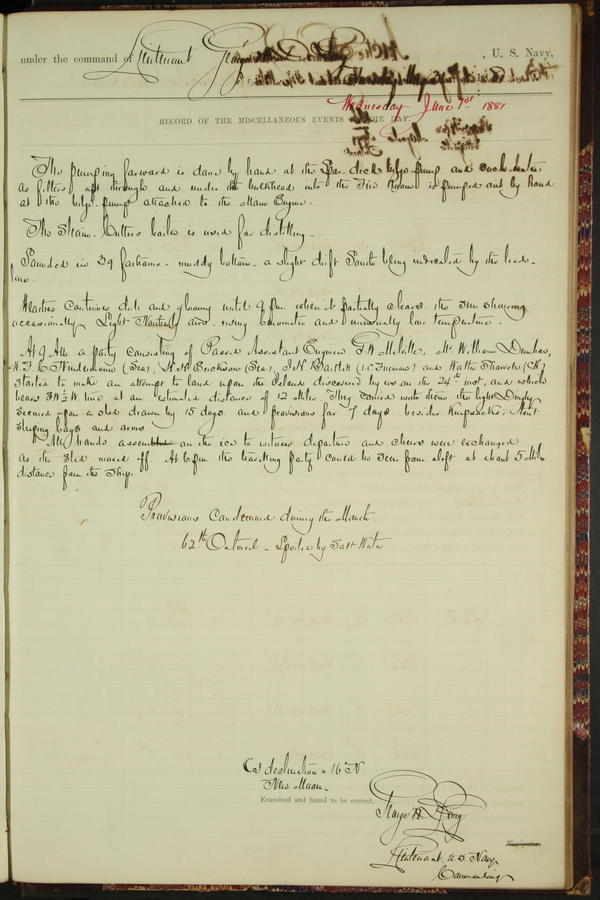 under the command of Lieutenant George W. De Long, U. S. Navy,
Wednesday June 1st 1881
RECORD OF THE MISCELLANEOUS EVENTS OF THE DAY.
The pumping forward is done by hand at the Spar deck bilge pump and
as filters aft through and under the bulkhead into the Fire Room is pumped out by hand
at the bilge pump attached to the Main Engine.
The Steam Cutters boiler is used for distilling.
Sounded in 39 fathoms - muddy bottom - a slight drift South being indicated by the lead-
line.
Weather continues dull and gloomy until 9 pm when it partially cleared the sun showing
occasionally. Light and rising barometer and unusually low temperature.
At 9 AM a party consisting of Passed Assistant Engineer G. W. Melville, Mr William Dunbar,
W. F. C. Nindemann (Sea), H. H. Erickson (Sea), J. H. Bartlett (1.C. Fireman) and Walter Sharvell (CH)
started to make an attempt to land upon the Island discovered by us on the 24th inst, and which
bears SW ½ W true at an estimated distance of 12 Miles. They carried with them the light Dinghy
secured upon a sled drawn by 15 dogs and provisions for 7 days besides Knapsacks, Tent
sleeping bags and arms.
All hands assembled on the ice to witness departure and cheers were exchanged
as the sled moved off. At 6 pm the travelling party could be seen from aloft at about 5 Miles
distance from the Ship.
Provisions Condemned during the Month
62 lb Oatmeal - Spoiled by Salt Water
declination = 16° N.
New Moon.
Examined and found to be correct,
George W. De Long
Navigator.
Lieutenant U.S. Navy
Commanding